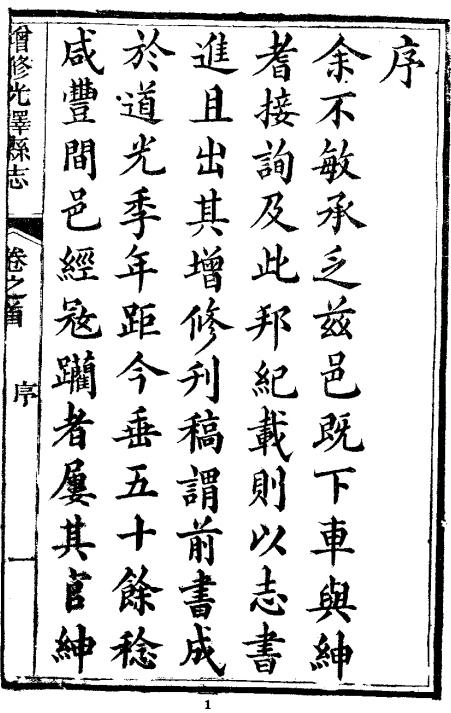 序
余不敏承乏茲邑既下車與紳
耆接詢及此邦紀載則以志書
進且出其增修刋稿謂前書成
於道光季年距今垂五十餘稔
咸豐間邑經宼躪者屢其官紳
增修光澤縣志
卷之首
序
1